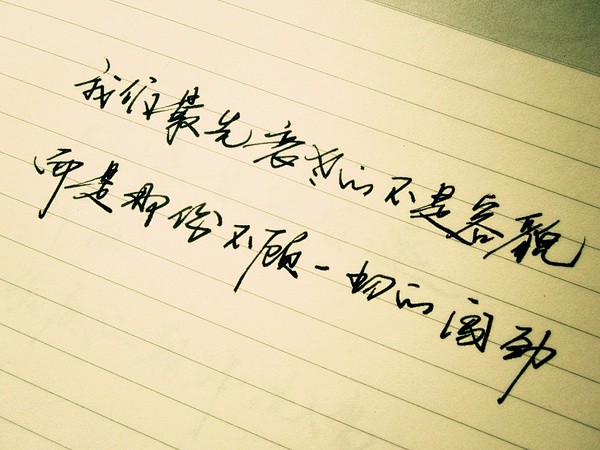 我们最先衰老的不是容貌
而是那份不顾一切的闯劲